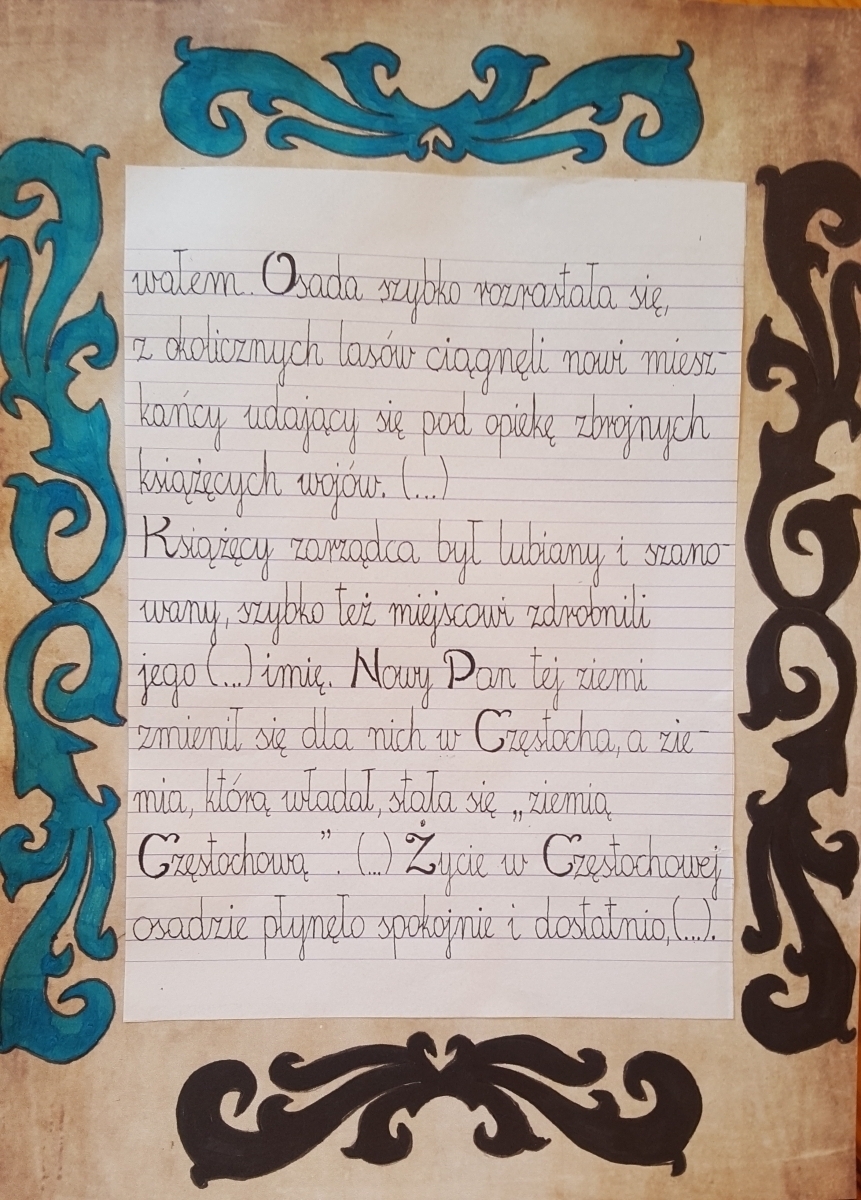 wałem. Osada szybko rozrastała się,
z okolicznych lasów ciągnęli nowi miesz-
kańcy udający się pod opiekę zbrojnych
książęcych wojów. (...)
Książęcy zarządca był lubiany i szano-
wany, szybko też miejscowi zdrobnili
jego (...) imię. Nowy Pan tej ziemi
zmienił się dla nich w Częstocha, a zie-
mia, którą władał, stała się „ziemią
Częstochową ”. (...) Życie w Częstochowej
osadzie płynęło spokojnie i dostatnio,(...).